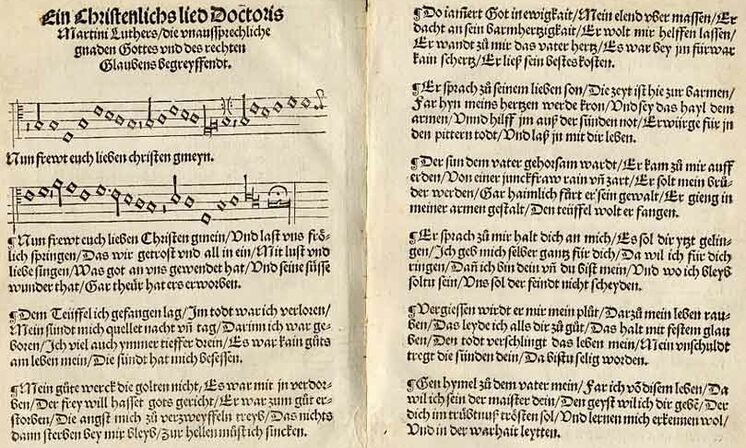 Ein Christenlichs lied Doctoris
Martini Luthers/die vnaussprechliche
gnaden Gottes vnd des rechten
Glaubens begreyffendt.
Nun frewt euch lieben christen gmeyn.
¶Nun frewt euch lieben Christen gmein/Vnd last vns frö-
lich springen/Das wir getrost vnd all in ein/Mit lust vnd
liebe singen/Was got an vns gewendet hat/Vnd seine süsse
wunder that/Gar theür hat ers erworben.
¶Dem Teüffel ich gefangen lag/Im todt war ich verloren/
Mein sündt mich quellet nacht vñ tag/Darinn ich war ge-
boren/Ich viel auch ymmer tieffer drein/Es war kain gůts
am leben mein/Die sündt hat mich besessen.
¶Mein gůte werck die golten nicht/Es war mit in verdor-
ben/Der frey will hasset gots gericht/Er war zum gůt er-
storben/Die angst mich zů verzweyffeln treyb/Das nichts
dann sterben bey mir bleyb/Zur hellen můst ich sincken.
¶Do iamert Got in ewigkait/Mein elend vber massen/Er
dacht an sein barmhertzigkait/Er wolt mir helffen lassen/
Er wandt zů mir das vater hertz/Es war bey jm fürwar
kain schertz/Er ließ sein bestes kosten.
¶Er sprach zů seinem lieben son/Die zeyt ist hie zur barmen/
Far hyn meins hertzen werde kron/Vnd sey das hayl dem
armen/Vnnd hilff jm auß der sünden not/Erwürge für jn
den pittern todt/Vnd laß jn mit dir leben.
¶Der sun dem vater gehorsam wardt/Er kam zů mir auff
erden/Von einer junckfraw rain vñ zart/Er solt mein brů-
der werden/Gar haimlich fürt er sein gewalt/Er gieng in
meiner armen gestalt/Den teüffel wolt er fangen.
¶Er sprach zů mir halt dich an mich/Es sol dir ytzt gelin-
gen/Ich geb mich selber gantz für dich/Da wil ich für dich
ringen/Dañ ich bin dein vñ du bist mein/Vnd wo ich bleyb
soltu sein/Vns sol der feindt nicht scheyden.
¶Vergiessen wirdt er mir mein plůt/Darzů mein leben rau-
ben/Das leyde ich als dir zů gůt/Das halt mit festem glau
ben/Den todt verschlingt das leben mein/Mein vnschuldt
tregt die sünden dein/Da bistu selig worden.
¶Gen hymel zů dem vater mein/Far ich vö disem leben/Da
wil ich sein der maister dein/Den geyst wil ich dir gebē/Der
dich im trübtnuß trösten sol/Vnd lernen mich erkennen wol/
Vnd in der warhait leytten.